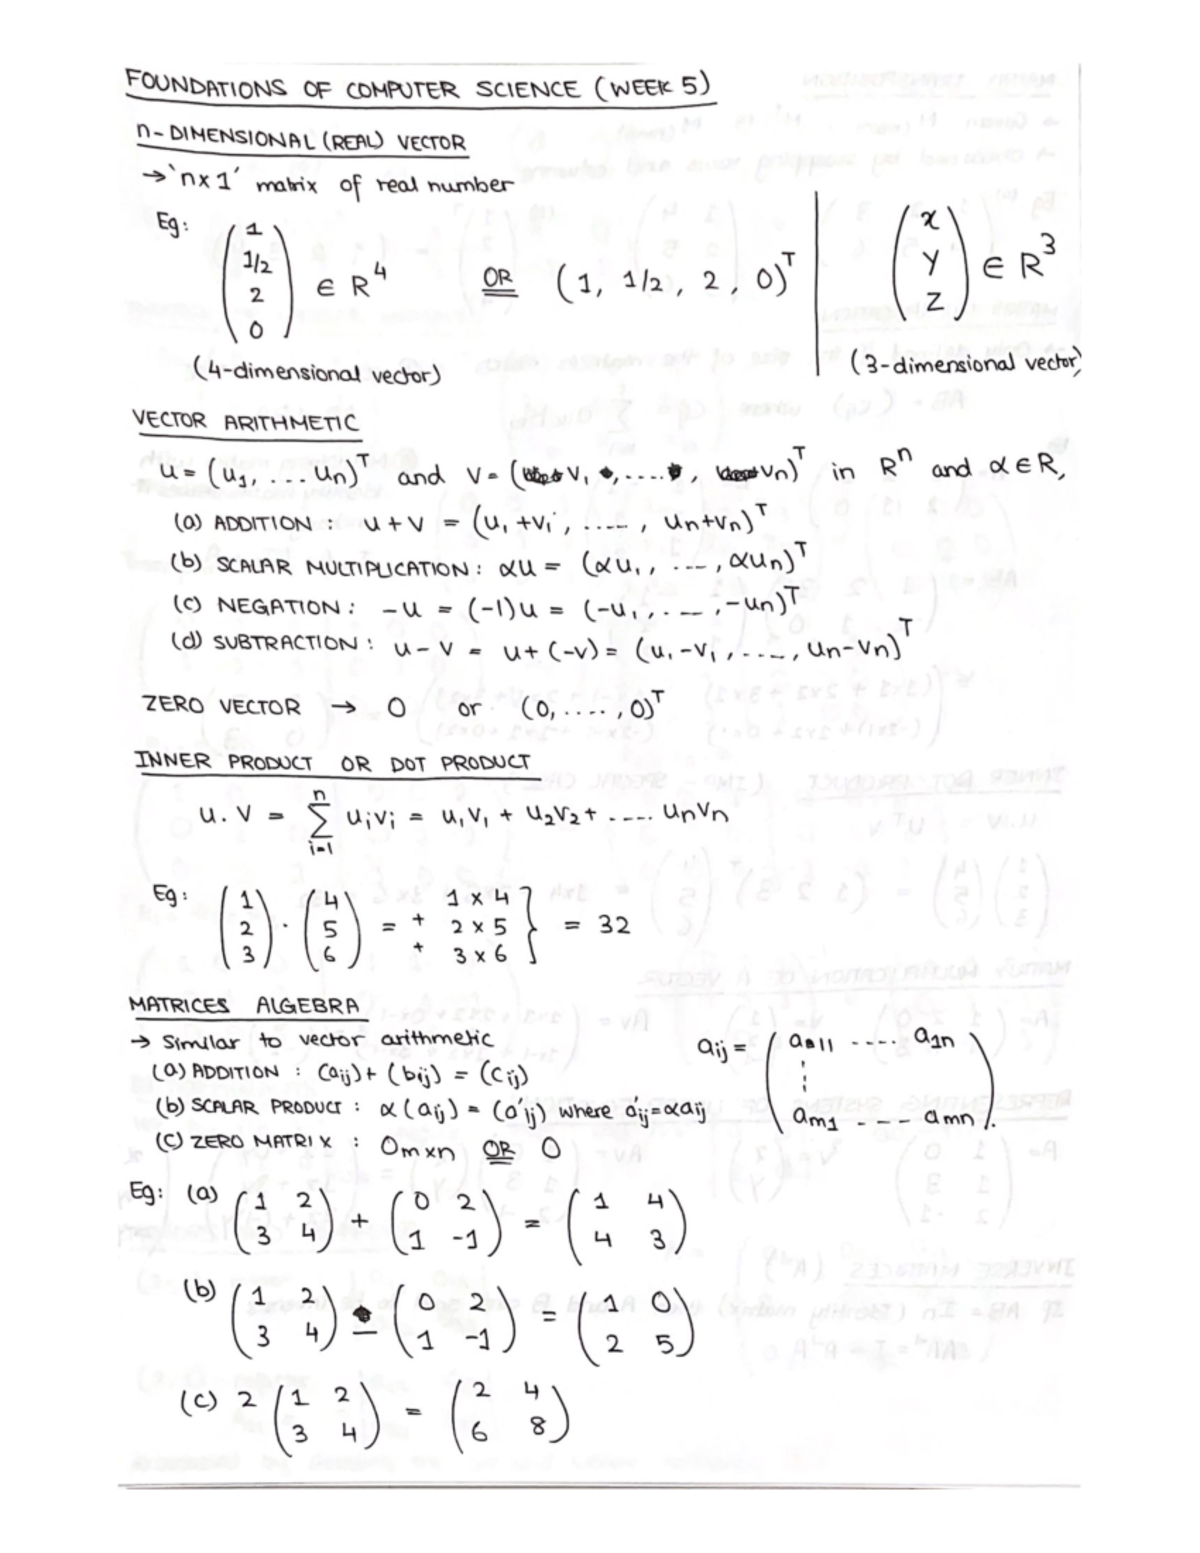 FOUNDATIONS OF COMPUTER SCIENCE (WEEK 5)
n-DIMENSIONAL (REAL) VECTOR
→ 'n x 1' matrix of real number
Eg: (1 1/2 2 0) ∈ R⁴ OR (1, 1/2, 2, 0)ᵀ
(x y z) ∈ R³
(4-dimensional vector)
(3-dimensional vector)
VECTOR ARITHMETIC
u = (u₁, ... un)ᵀ and v = (v₁, ...., vn)ᵀ in Rⁿ and α ∈ R,
(a) ADDITION : u + v = (u₁ + v₁, ...., un+vn)ᵀ
(b) SCALAR MULTIPLICATION : αu = (αu₁, ..., αun)ᵀ
(c) NEGATION : -u = (-1)u = (-u₁, ..., -un)ᵀ
(d) SUBTRACTION : u - v = u + (-v) = (u₁-v₁, ...., un-vn)ᵀ
ZERO VECTOR → 0 or (0, ...., 0)ᵀ
INNER PRODUCT OR DOT PRODUCT
u . v = n Σ i=1 uᵢvᵢ = u₁v₁ + u₂v₂ + .... unvn
Eg: (1 2 3) . (4 5 6) = 1 x 4 + 2 x 5 + 3 x 6 } = 32
MATRICES ALGEBRA
→ Similar to vector arithmetic
aij = (a11 .... a1n ⋮ am1 .... amn).
(a) ADDITION : (aij) + (bij) = (cij)
(b) SCALAR PRODUCT : α(aij) = (a'ij) where a'ij = αaij
(c) ZERO MATRIX : 0mxn OR 0
Eg: (a) (1 2 3 4) + (0 2 1 -1) = (1 4 4 3)
(b) (1 2 3 4) - (0 2 1 -1) = (1 0 2 5)
(c) 2 (1 2 3 4) = (2 4 6 8)